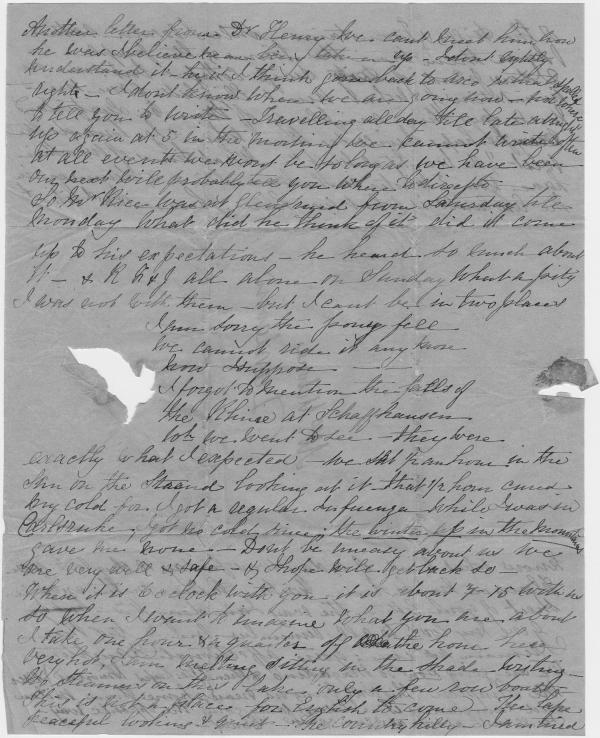 Another letter from Dr Henry we can't meet him now
he was I believe mean being taken up - I dont rightly
understand it - he is I think gone back to
right - I don't know when we are going now - no use
to tell you to write - travelling all day till late at night &
up again at 5 in the morning we cannot write often
at all events we wont be so long as we have been
our next will probably tell you where to direct to
So Mr Rice was at Glengraid from Saturday till
Monday What did he think of it did it come
up to his expectations - he heard so much about
it - & R F & J all alone on Sunday What a pity
I was not with them - but I cant be in two places
I am sorry the poney fell
We cannot ride it any more
now I suppose
I forgot to mention the falls of
the Rhine at Schaffhausen
wh we went to see - they were
exactly what I expected - we sat ½ an hour in the
Sun on the Strand looking at it - that ½ hour cured
my cold for I got a regular Influenza while I was in
Carlsruhe, got no cold since, the winter in the mountains
gave me none - Dont be uneasy about us we
are very well & safe - & I hope will get back so -
When it is 6 o'clock with you it is about 7-15 with us
so when I want to imagine what you are about
I take one hour & a quarter off the hour here
very hot, I am melting sitting in the shade writing -
No steamers on the Lake, only a few row boats -
This is not a place for English to come - The Lake
peaceful looking & quiet - the country hilly - I am tired